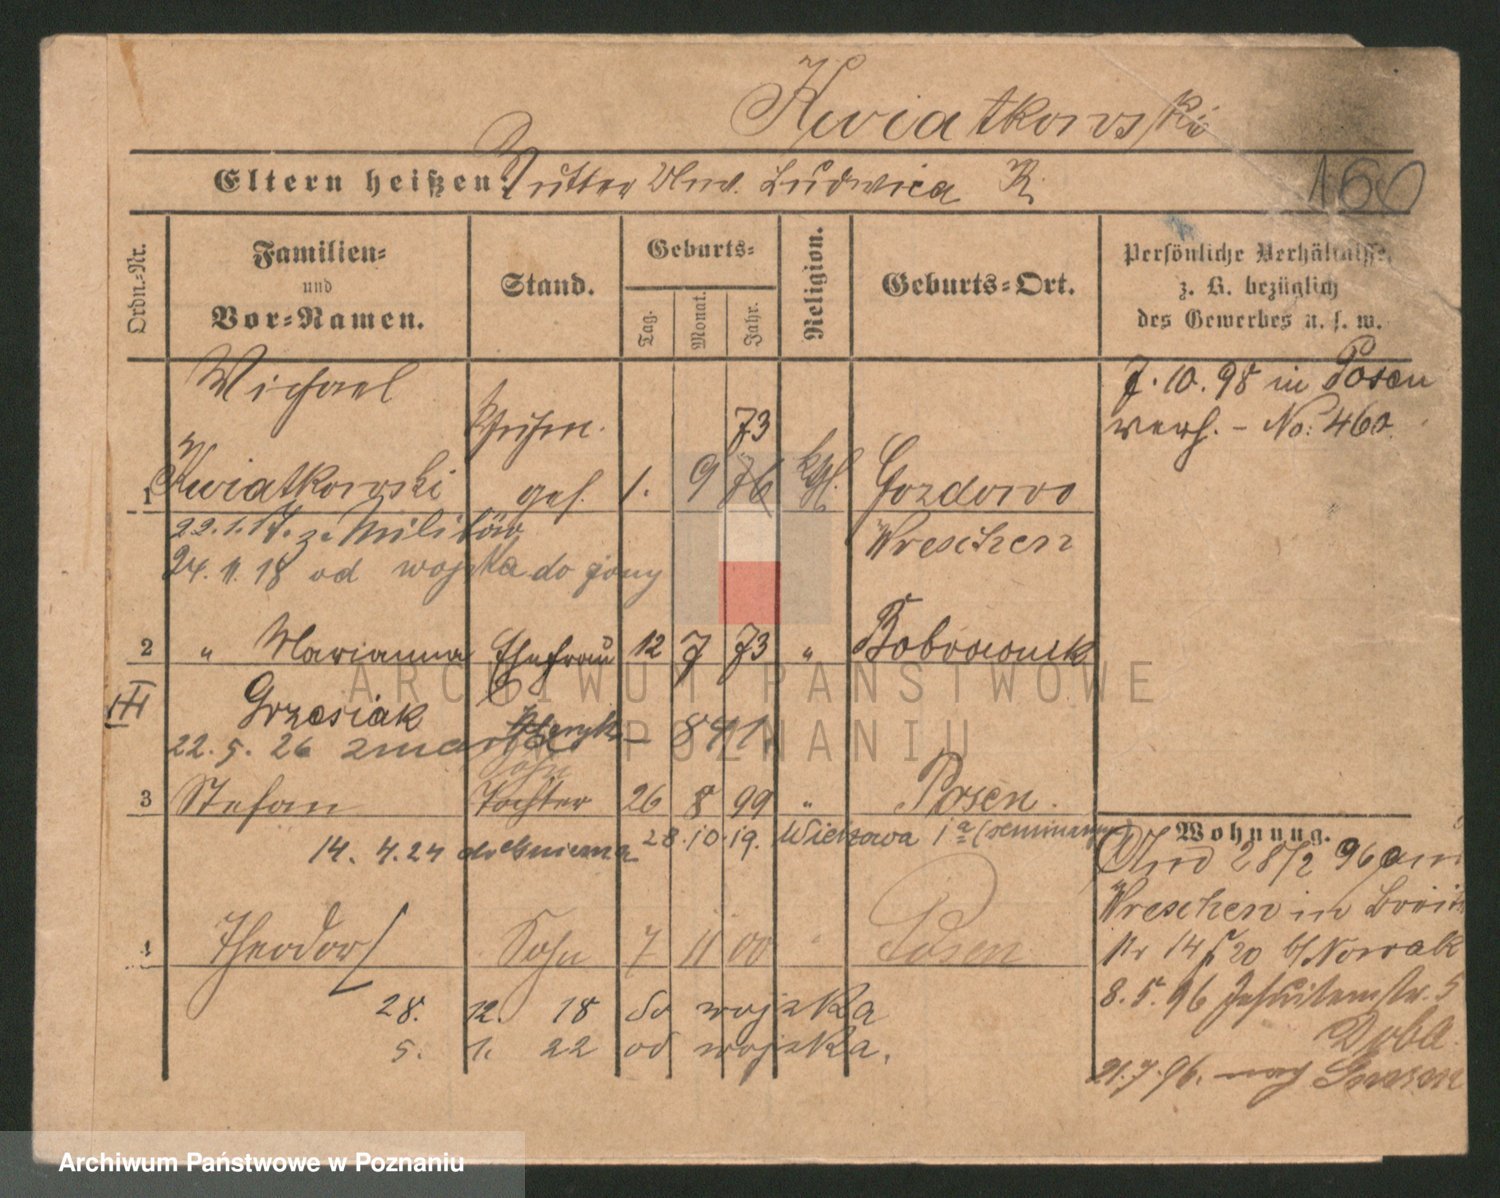 Kwiatkowski
Eltern heißen: Mutter Wwe. Ludwica K.
160
Ordn.-Nr.
Familien- und Vor-Namen.
Stand.
Geburts-
Tag.
Monat.
Jahr.
Religion.
Geburts-Ort.
Persönliche Verhältnisse, z. B. bezüglich des Gewerbes u. s. w.
Michael
7.10.98 in Posen
73
verh. - No: 460
1 Kwiatkowski ges. 1. 9 76 kath. Gozdowo
22.1.17. z. Militär
Wreschen
24.11.18 od wojska do żony
2 " Marianna Ehefrau 12 7 73 "
III
Grzesiak
22.5.26 zmarła 841
Sohn
3 Stefan Tochter 26 8 99 " Posen.
28.10.19.
14.4.24 do Gniezna
Wohnung.
28/2 96
Wreschen in
4 Theodor Sohn 7 11 00 " Posen
Nr 14 b/ Nowak
28. 12. 18 do wojska
8.5.96 Jesuitenstr. 5
5. 1. 22 od wojska.
21.7.96. nach
ARCHIWUM PAŃSTWOWE
W POZNANIU
Archiwum Państwowe w Poznaniu